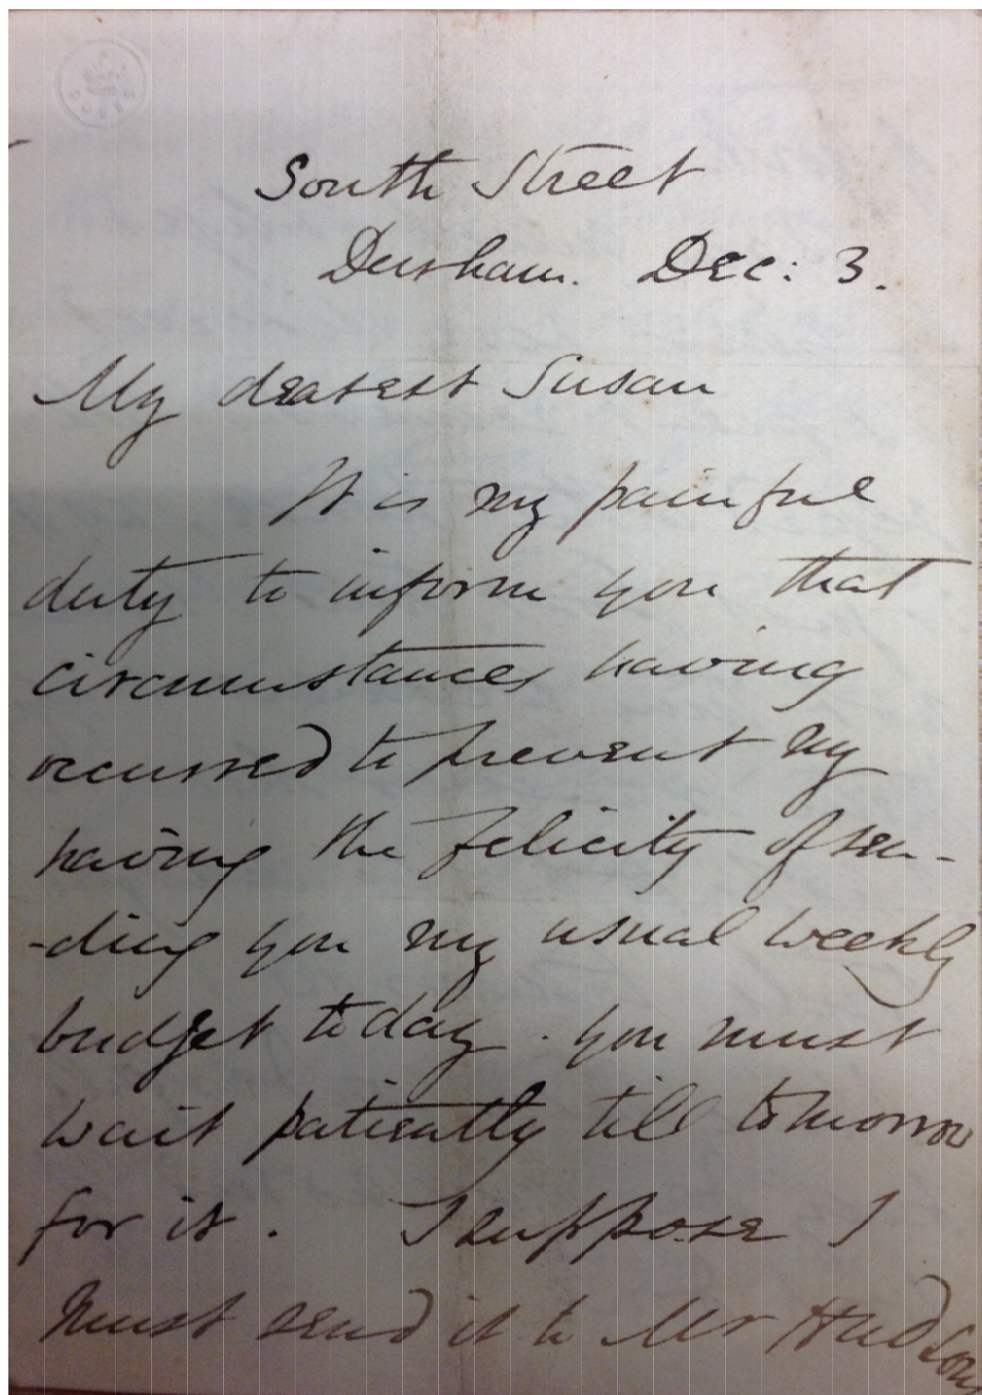 South Street
Durham. Dec: 3.
My dearest Susan
It is my painful
duty to inform you that
circumstances having
occurred to prevent my
having the felicity of sen-
-ding you my usual weekly
budget today. you must
wait patiently till tomorrow
for it. I suppose I
must send it to Mr Hudsons